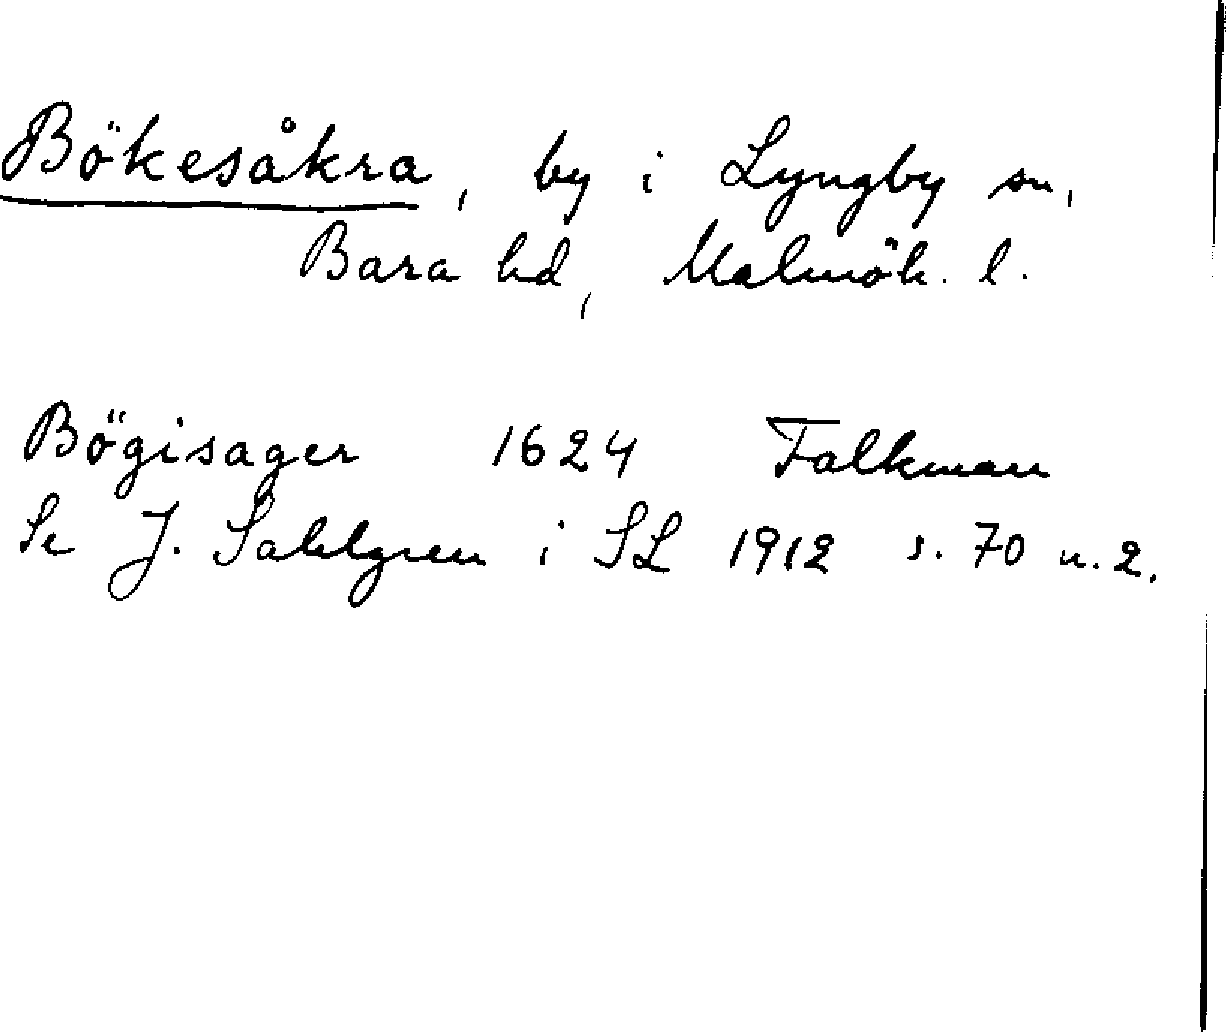 Bökesåkra, by i Lyngby sn,
Bara hd, Malmöh. l.
Bögisager 1624 Falkman
Se J. Sahlgren i SL 1912 s. 70 n. 2.